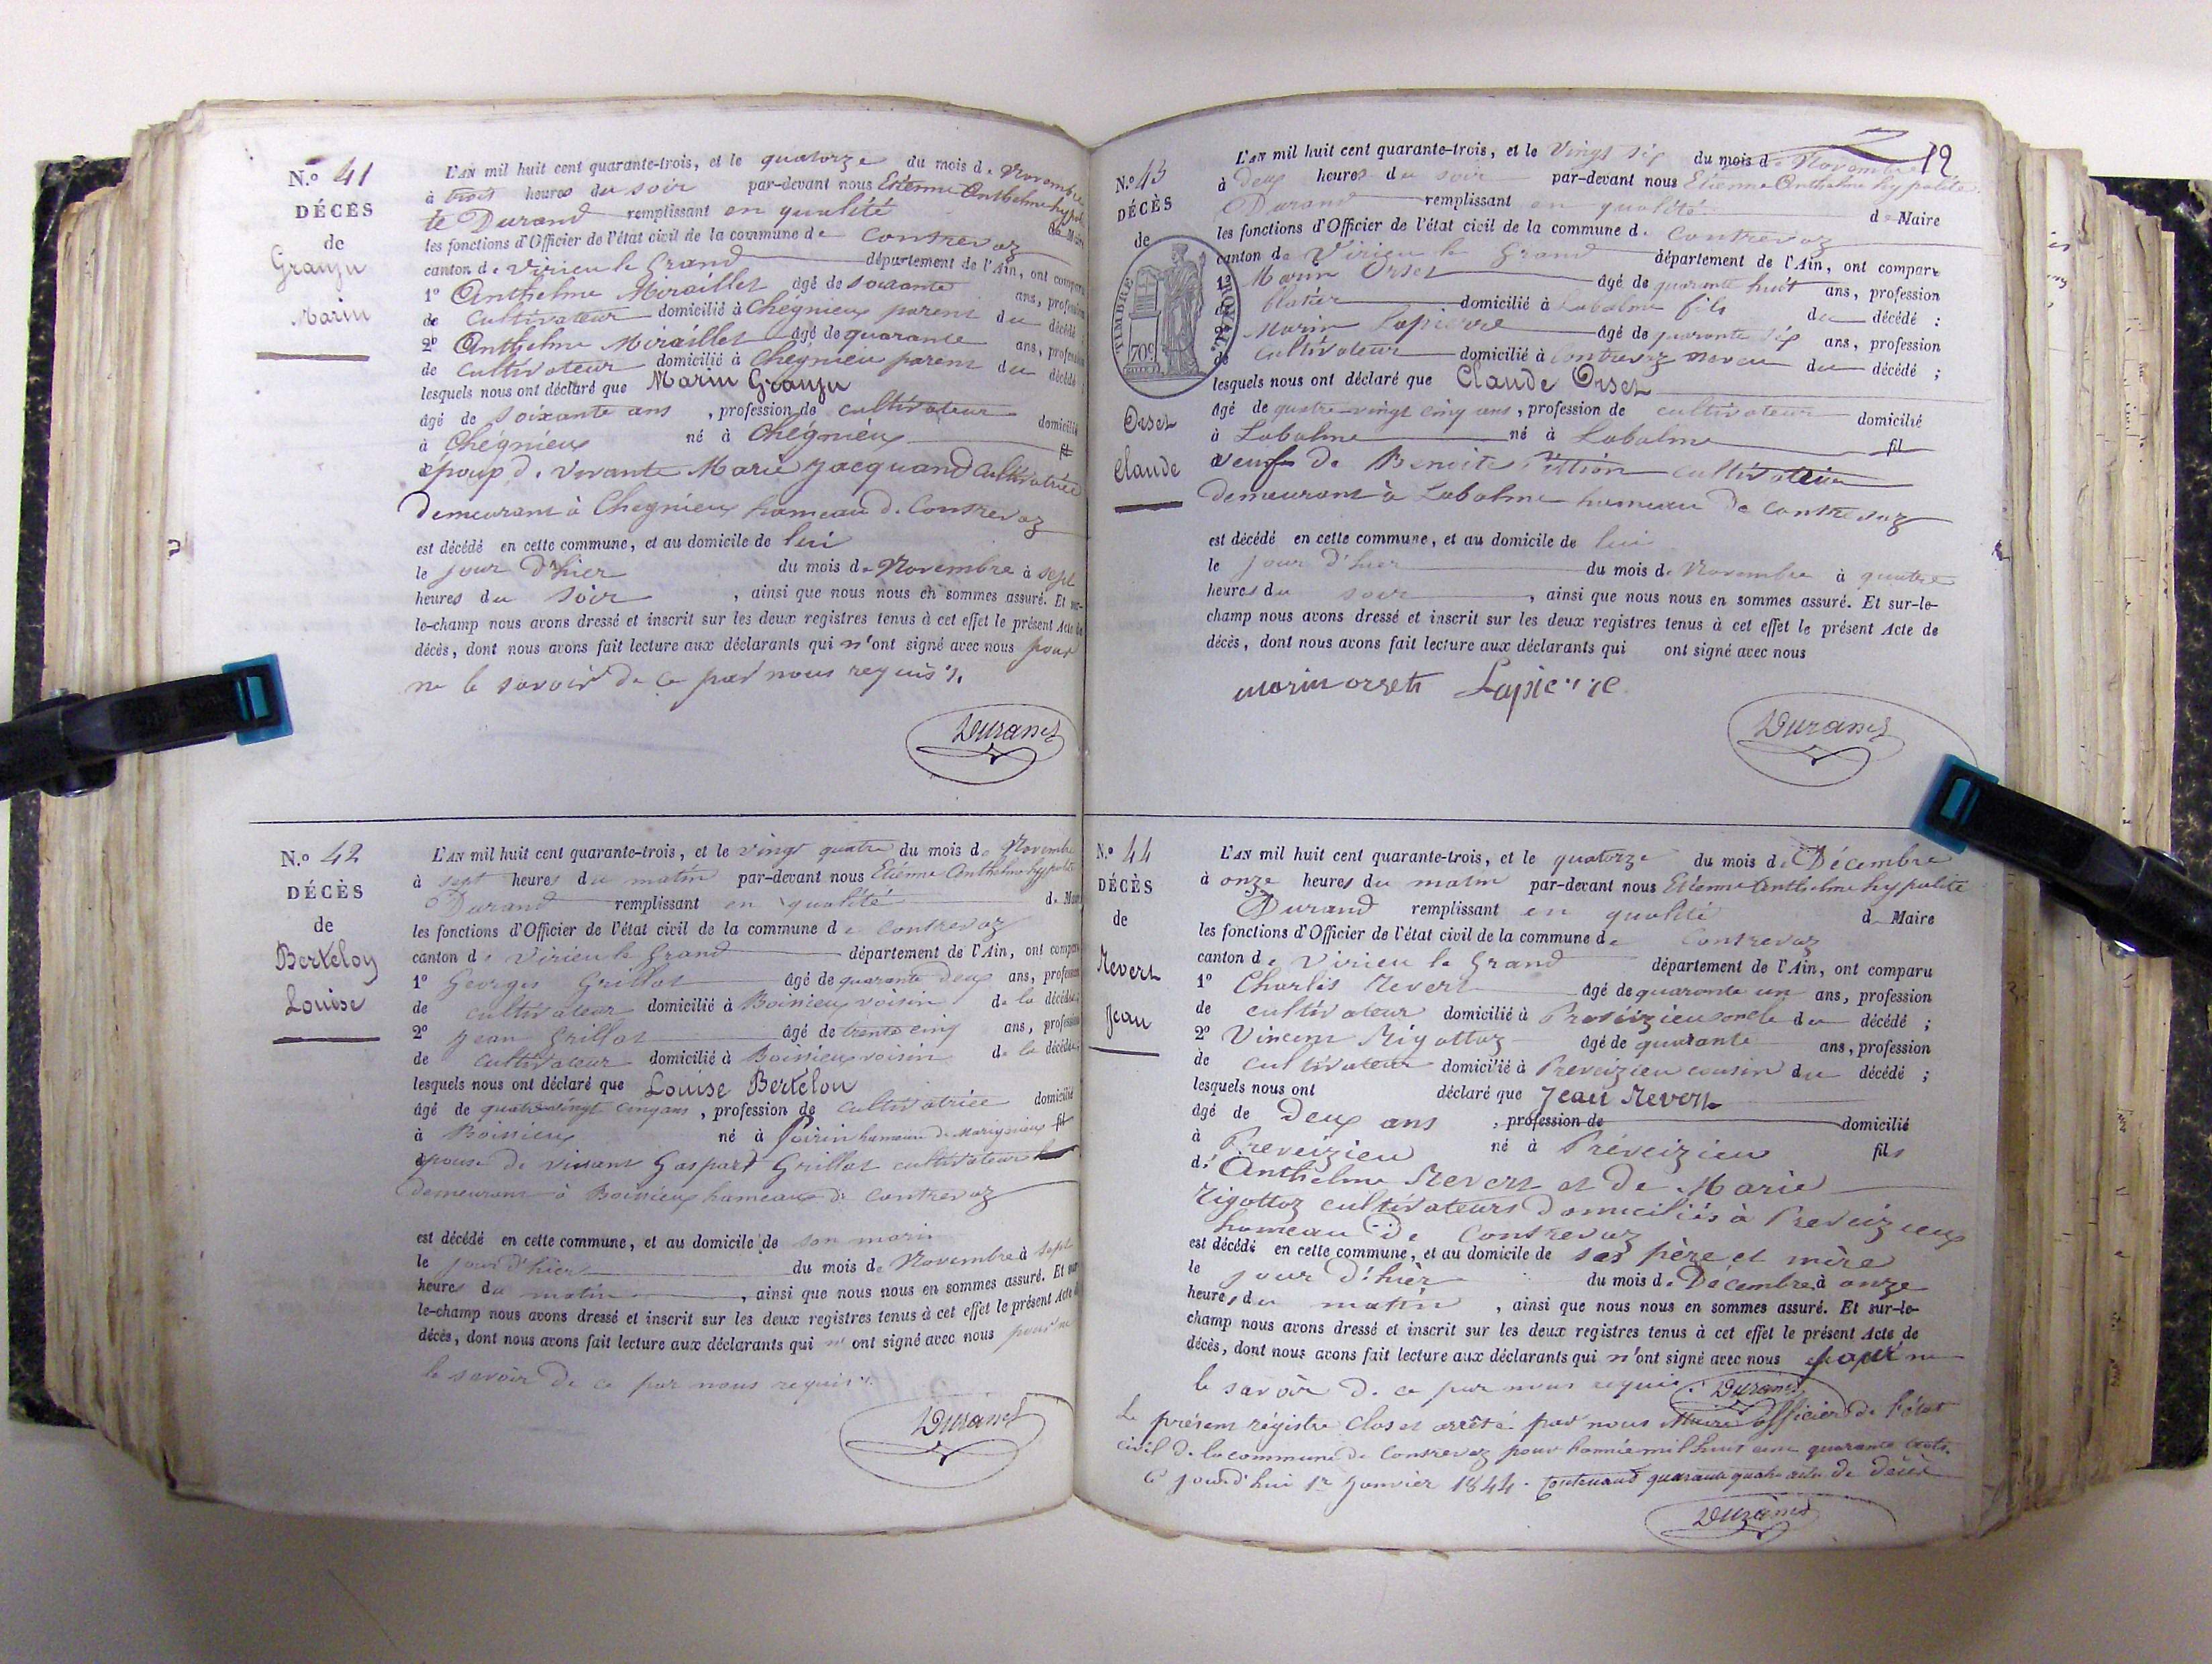 N.º 41
DÉCÈS
de
Granju
Marin
L'AN mil huit cent quarante-trois, et le quatorze du mois de Novembre
à trois heures du soir par-devant nous Etienne Anthelme hypoli
te Durand remplissant en qualité de Maire
les fonctions d'Officier de l'état civil de la commune de Contrevoz
canton de Virieu le Grand département de l'Ain, ont comparu
1º Anthelme Miraillet âgé de soixante ans, profession
de Cultivateur domicilié à Chégnieux parent du décédé ;
2º Anthelme Miraillet âgé de quarante ans, profession
de Cultivateur domicilié à Chégnieu parent du décédé ;
lesquels nous ont déclaré que Marin Granju
âgé de soixante ans , profession de cultivateur domicilié
à Chégnieux né à Chégnieux fil
époux de vivante Marie Jacquand Cultivatrice
demeurant à Chegnieux hameau de Contrevoz
est décédé en cette commune, et au domicile de lui
le jour d'hier du mois de Novembre à sept
heures du soir , ainsi que nous nous en sommes assuré. Et sur-
le-champ nous avons dressé et inscrit sur les deux registres tenus à cet effet le présent Acte de
décès, dont nous avons fait lecture aux déclarants qui n'ont signé avec nous pour
ne le savoir de ce par nous requis.
Durand
N.º 42
DÉCÈS
de
Berteloy
Louise
L'AN mil huit cent quarante-trois, et le vingt quatre du mois de Novembre
à sept heures du matin par-devant nous Etienne Anthelme hypolite
Durand remplissant en qualité de Maire
les fonctions d'Officier de l'état civil de la commune de Contrevoz
canton de Virieu le Grand département de l'Ain, ont comparu
1º Georges Grillot âgé de quarante deux ans, profession
de cultivateur domicilié à Boissieux voisin de la décédée ;
2º Jean Grillot âgé de trente cinq ans, profession
de Cultivateur domicilié à Boissieux voisin de la décédée ;
lesquels nous ont déclaré que Louise Bertelou
âgé de quatre-vingt cinq ans , profession de cultivatrice domicilié
à Boissieux né à Poirin hameau de Marignieux fil
épouse de vivant Gaspard Grillot cultivateur
demeurant à Boissieux hameau de Contrevoz
est décédé en cette commune, et au domicile de son marin
le jour d'hier du mois de Novembre à sept
heures du matin , ainsi que nous nous en sommes assuré. Et sur
le-champ nous avons dressé et inscrit sur les deux registres tenus à cet effet le présent Acte de
décès, dont nous avons fait lecture aux déclarants qui n'ont signé avec nous pour ne
le savoir de ce par nous requis.
Durand
12
N.º 43
DÉCÈS
de
TIMBRE ROYAL
70c
Orset
Claude
L'AN mil huit cent quarante-trois, et le Vingt six du mois de Novembre
à deux heures du soir par-devant nous Etienne Anthelme hypolite
Durand remplissant en qualité de Maire
les fonctions d'Officier de l'état civil de la commune de Contrevoz
canton de Virieu le Grand département de l'Ain, ont comparu
1º Marin Orset âgé de quarante huit ans, profession
de domicilié à Labalme fils du décédé ;
2º Marin Lapierre âgé de quarante six ans, profession
de Cultivateur domicilié à Contrevoz neveu du décédé ;
lesquels nous ont déclaré que Claude Orset
âgé de quatre-vingt cinq ans , profession de cultivateur domicilié
à Labalme né à Labalme fil
veuf de Benoite cultivateur
demeurant à Labalme hameau de Contrevoz
est décédé en cette commune, et au domicile de lui
le jour d'hier du mois de Novembre à quatre
heures du soir , ainsi que nous nous en sommes assuré. Et sur-le-
champ nous avons dressé et inscrit sur les deux registres tenus à cet effet le présent Acte de
décès, dont nous avons fait lecture aux déclarants qui ont signé avec nous
marin orset Lapierre
Durand
N.º 44
DÉCÈS
de
Revert
Jean
L'AN mil huit cent quarante-trois, et le quatorze du mois de Décembre
à onze heures du matin par-devant nous Etienne Anthelme hypolite
Durand remplissant en qualité de Maire
les fonctions d'Officier de l'état civil de la commune de Contrevoz
canton de Virieu le Grand département de l'Ain, ont comparu
1º Charles Revert âgé de quaronte un ans, profession
de cultivateur domicilié à Preveizieu oncle du décédé ;
2º Vincent Rigottoz âgé de quarante ans, profession
de cultivateur domicilié à Preveizieu cousin du décédé ;
lesquels nous ont déclaré que Jean Revert
âgé de deux ans , profession de domicilié
à Preveizieu né à Préveizieu fils
d'Anthelme Revert et de Marie
Rigottoz cultivateurs domiciliés à Preveizieux
hameau de Contrevoz
est décédé en cette commune, et au domicile de ses père et mère
le jour d'hier du mois de Décembre à onze
heures du matin , ainsi que nous nous en sommes assuré. Et sur-le-
champ nous avons dressé et inscrit sur les deux registres tenus à cet effet le présent Acte de
décès, dont nous avons fait lecture aux déclarants qui n'ont signé avec nous pour ne
le savoir de ce par nous requis. Durand
Le présent régistre clos et arrêté par nous Maire officier de l'état
civil de la commune de Contrevoz pour l'année mil huit cent quarante trois.
Ce jourd'hui 1er Janvier 1844. Contenant quarante quatre actes de décès
Durand